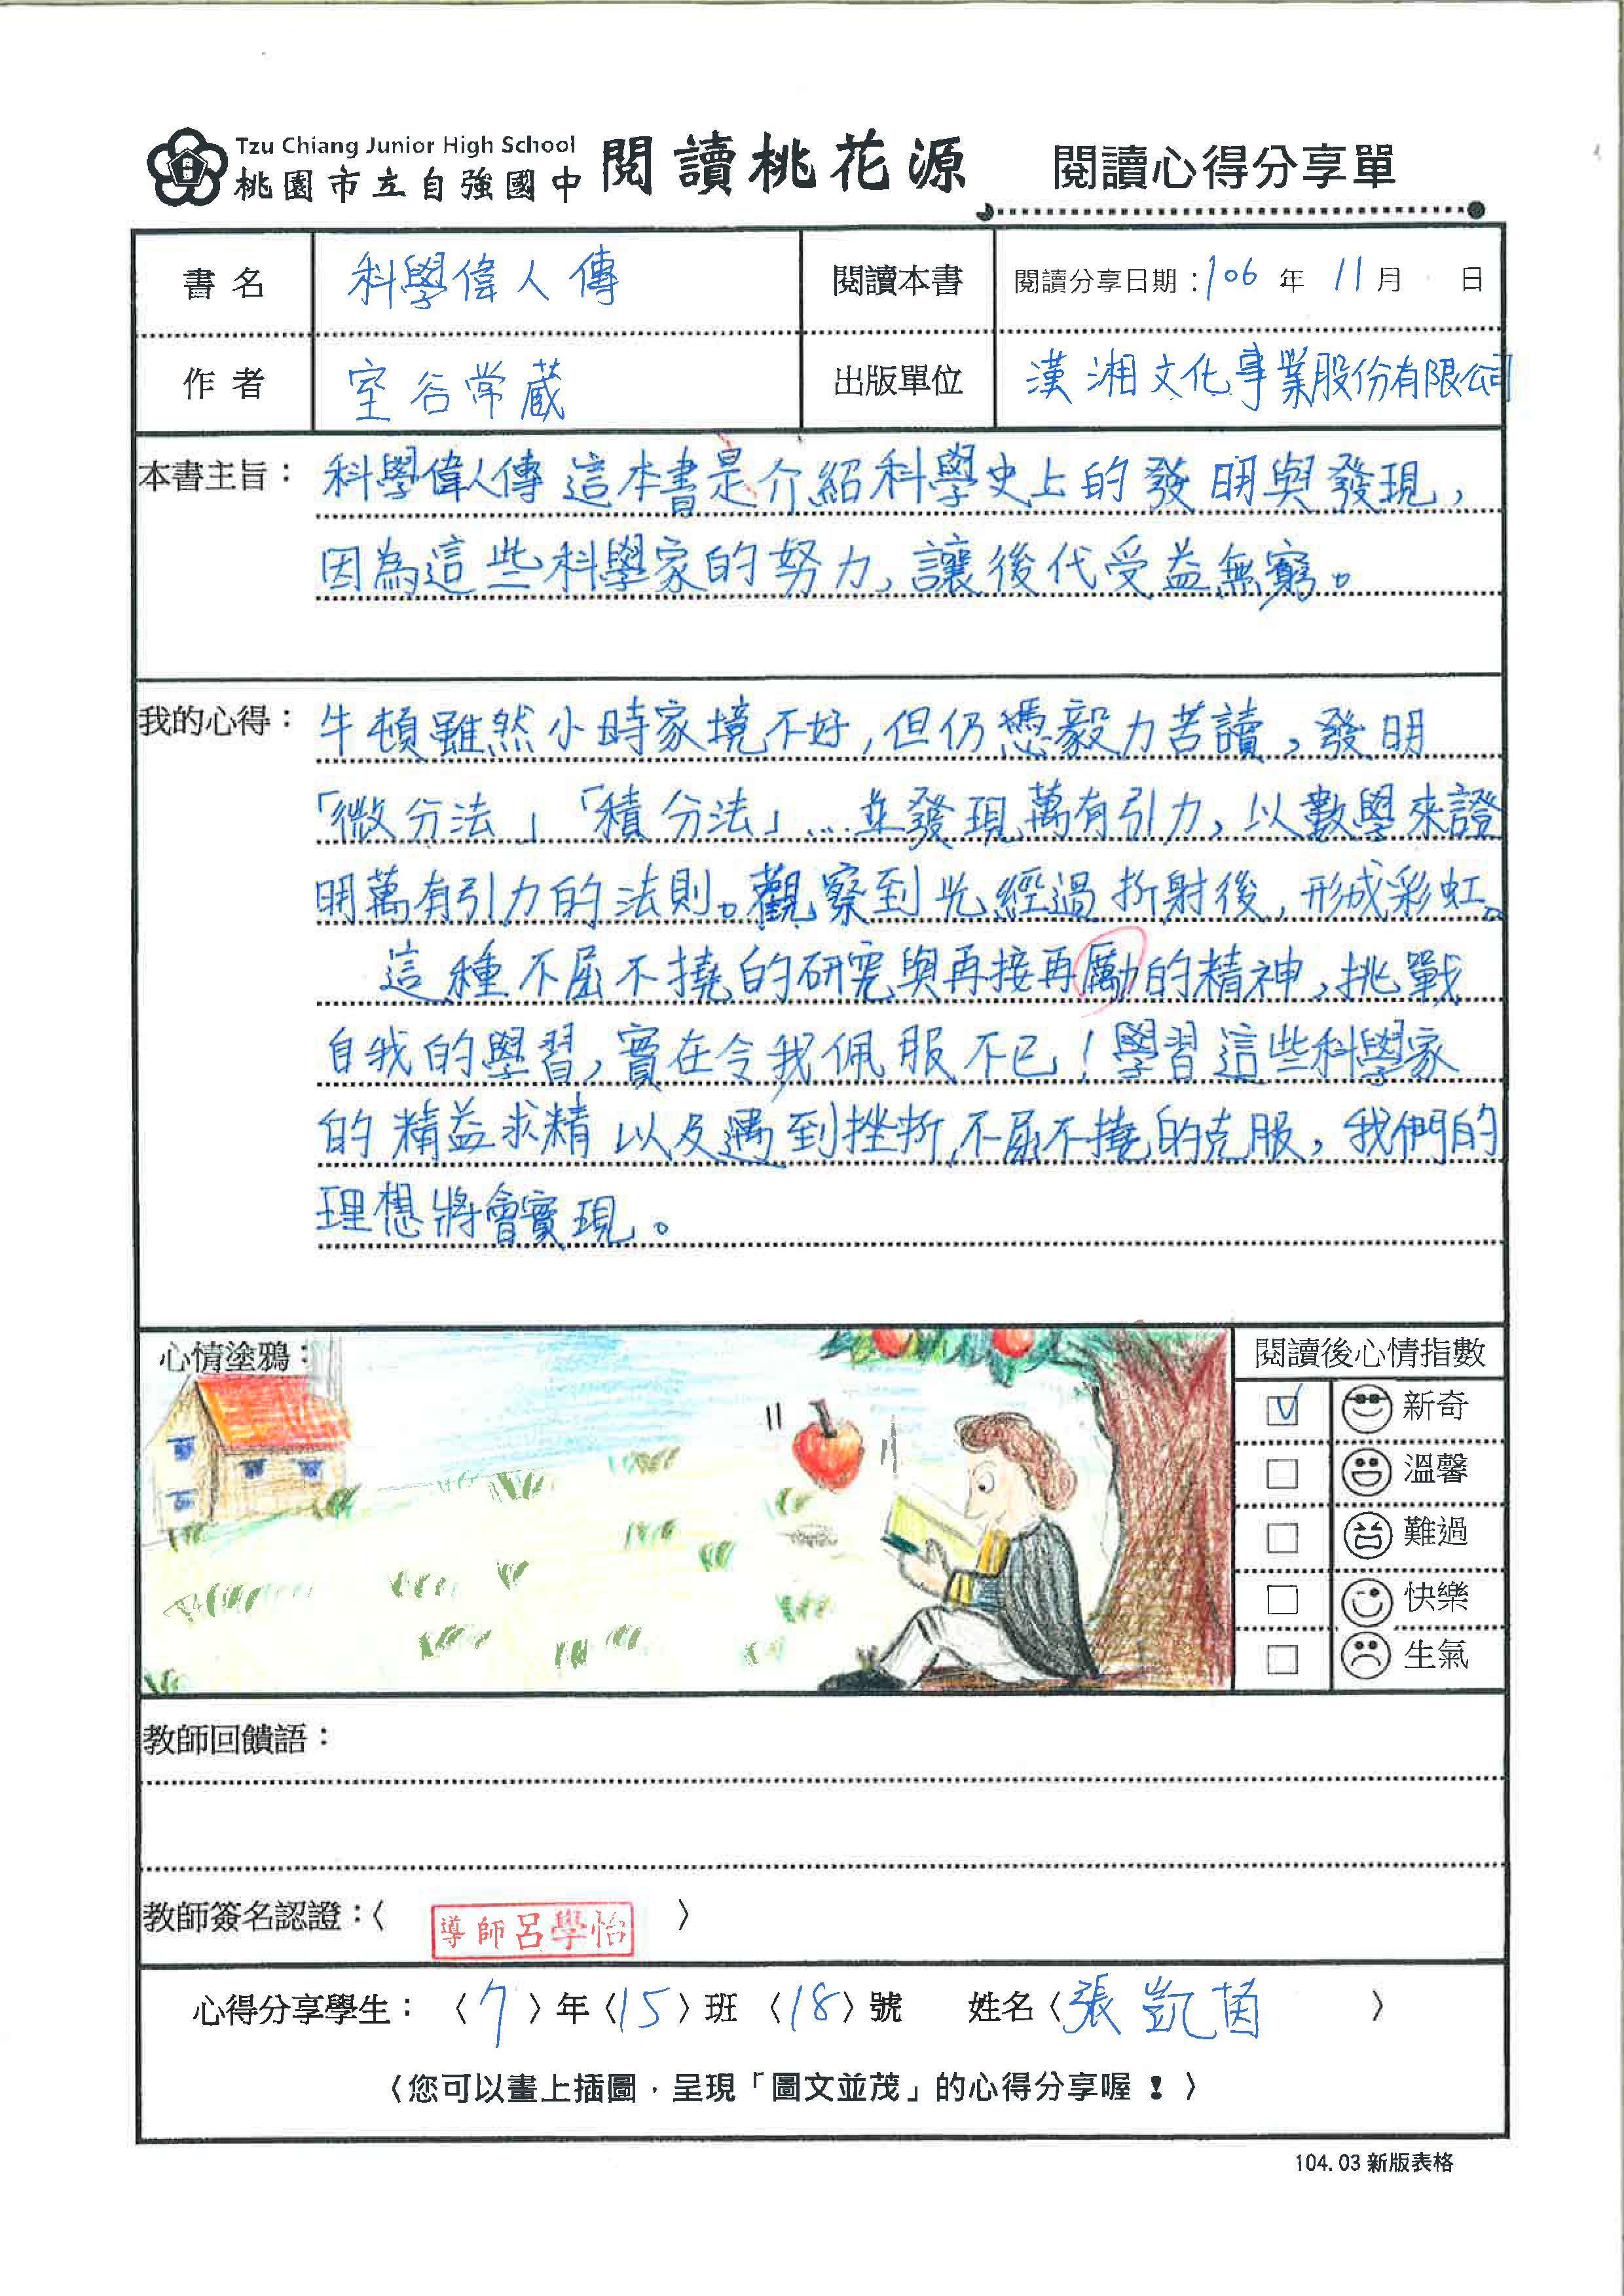 Tzu Chiang Junior High School
桃園市立自強國中 閱讀桃花源 閱讀心得分享單
書名 科學偉人傳 閱讀本書 閱讀分享日期：106年 11月 日
作者 室谷常蔵 出版單位 漢湘文化事業股份有限公司
本書主旨：科學偉人傳這本書是介紹科學史上的發明與發現，
因為這些科學家的努力，讓後代受益無窮。
我的心得：牛頓雖然小時家境不好，但仍憑毅力苦讀，發明
「微分法」「積分法」…並發現萬有引力，以數學來證
明萬有引力的法則。觀察到光經過折射後，形成彩虹。
這種不屈不撓的研究與再接再勵的精神，挑戰
自我的學習，實在令我佩服不已！學習這些科學家
的精益求精以及遇到挫折，不屈不撓的克服，我們的
理想將會實現。
心情塗鴉： 閱讀後心情指數
V 新奇
□ 溫馨
□ 難過
□ 快樂
□ 生氣
教師回饋語：
教師簽名認證：〈 導師呂學怡 〉
心得分享學生：〈7〉年〈15〉班〈18〉號 姓名〈張凱茵 〉
〈您可以畫上插圖，呈現「圖文並茂」的心得分享喔！〉
104.03新版表格